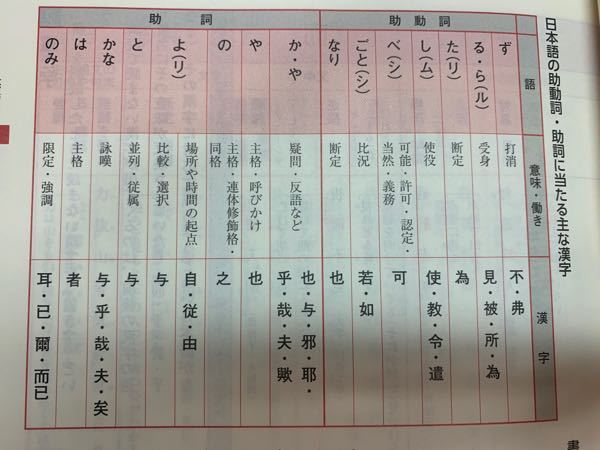 日本語の助動詞・助詞に当たる主な漢字
語 意味・働き 漢字
助動詞
ず 打消 不・弗
る・ら(ル) 受身 見・被・所・為
た(リ) 断定 為
し(ム) 使役 使・教・令・遣
べ(シ) 可能・許可・認定・
当然・義務 可
ごと(シ) 比況 若・如
なり 断定 也
助詞
か・や 疑問・反語など 也・与・邪・耶・
乎・哉・夫・歟
や 主格・呼びかけ 也
の 主格・連体修飾格・
同格 之
よ(リ) 場所や時間の起点 自・従・由
比較・選択 与
と 並列・従属 与
かな 詠嘆 与・乎・哉・夫・矣
は 主格 者
のみ 限定・強調 耳・已・爾・而已
書